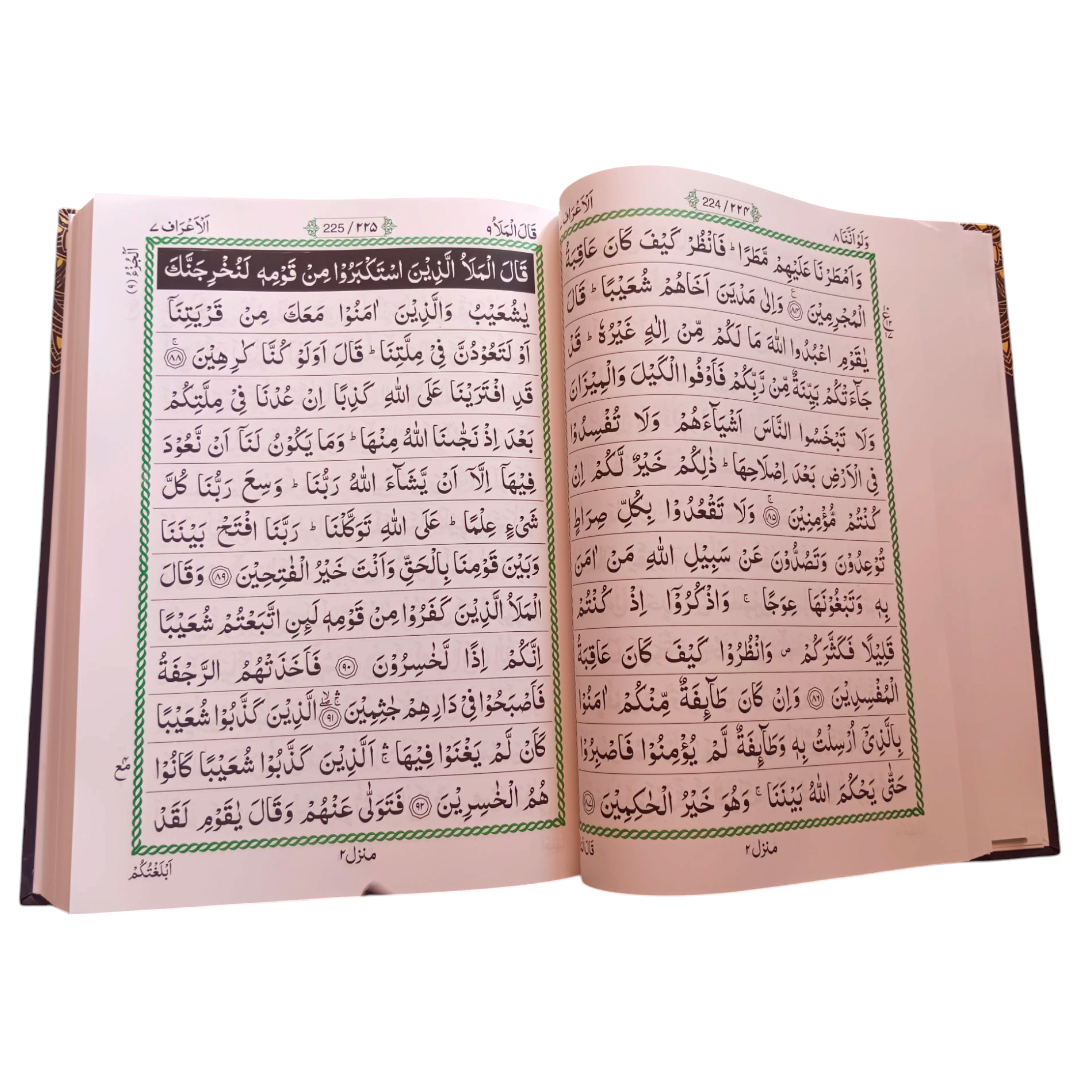 وَلَوْ اَنَّنَا ٨
224 / ٢٢٤
اَلْاَعْرَاف
وَاَمْطَرْنَا عَلَيْهِمْ مَّطَرًا ؕ فَانْظُرْ كَيْفَ كَانَ عَاقِبَةُ
الْمُجْرِمِيْنَ ﴿٨٤﴾ وَاِلٰى مَدْيَنَ اَخَاهُمْ شُعَيْبًا ؕ قَالَ
يٰقَوْمِ اعْبُدُوا اللّٰهَ مَا لَكُمْ مِّنْ اِلٰهٍ غَيْرُهٗ ؕ قَدْ
جَآءَتْكُمْ بَيِّنَةٌ مِّنْ رَّبِّكُمْ فَاَوْفُوا الْكَيْلَ وَالْمِيْزَانَ
وَلَا تَبْخَسُوا النَّاسَ اَشْيَآءَهُمْ وَلَا تُفْسِدُوْا
فِى الْاَرْضِ بَعْدَ اِصْلَاحِهَا ؕ ذٰلِكُمْ خَيْرٌ لَّكُمْ اِنْ
كُنْتُمْ مُّؤْمِنِيْنَ ۚ﴿٨٥﴾ وَلَا تَقْعُدُوْا بِكُلِّ صِرَاطٍ
تُوْعِدُوْنَ وَتَصُدُّوْنَ عَنْ سَبِيْلِ اللّٰهِ مَنْ اٰمَنَ
بِهٖ وَتَبْغُوْنَهَا عِوَجًا ۚ وَاذْكُرُوْۤا اِذْ كُنْتُمْ
قَلِيْلًا فَكَثَّرَكُمْ ۪ وَانْظُرُوْا كَيْفَ كَانَ عَاقِبَةُ
الْمُفْسِدِيْنَ ﴿٨٦﴾ وَاِنْ كَانَ طَآئِفَةٌ مِّنْكُمْ اٰمَنُوْا
بِالَّذِىْۤ اُرْسِلْتُ بِهٖ وَطَآئِفَةٌ لَّمْ يُؤْمِنُوْا فَاصْبِرُوْا
حَتّٰى يَحْكُمَ اللّٰهُ بَيْنَنَا ۚ وَهُوَ خَيْرُ الْحٰكِمِيْنَ ﴿٨٧﴾
منزل ٢
قَالَ
قَالَ الْمَلَاُ ٩
225 / ٢٢٥
اَلْاَعْرَاف ٧
اَلْجُزْءُ (٩)
قَالَ الْمَلَاُ الَّذِيْنَ اسْتَكْبَرُوْا مِنْ قَوْمِهٖ لَنُخْرِجَنَّكَ
يٰشُعَيْبُ وَالَّذِيْنَ اٰمَنُوْا مَعَكَ مِنْ قَرْيَتِنَاۤ
اَوْ لَتَعُوْدُنَّ فِىْ مِلَّتِنَا ؕ قَالَ اَوَلَوْ كُنَّا كٰرِهِيْنَ ۚ﴿٨٨﴾
قَدِ افْتَرَيْنَا عَلَى اللّٰهِ كَذِبًا اِنْ عُدْنَا فِىْ مِلَّتِكُمْ
بَعْدَ اِذْ نَجّٰىنَا اللّٰهُ مِنْهَا ؕ وَمَا يَكُوْنُ لَنَاۤ اَنْ نَّعُوْدَ
فِيْهَاۤ اِلَّاۤ اَنْ يَّشَآءَ اللّٰهُ رَبُّنَا ؕ وَسِعَ رَبُّنَا كُلَّ
شَىْءٍ عِلْمًا ؕ عَلَى اللّٰهِ تَوَكَّلْنَا ؕ رَبَّنَا افْتَحْ بَيْنَنَا
وَبَيْنَ قَوْمِنَا بِالْحَقِّ وَاَنْتَ خَيْرُ الْفٰتِحِيْنَ ﴿٨٩﴾ وَقَالَ
الْمَلَاُ الَّذِيْنَ كَفَرُوْا مِنْ قَوْمِهٖ لَئِنِ اتَّبَعْتُمْ شُعَيْبًا
اِنَّكُمْ اِذًا لَّخٰسِرُوْنَ ﴿٩٠﴾ فَاَخَذَتْهُمُ الرَّجْفَةُ
فَاَصْبَحُوْا فِىْ دَارِهِمْ جٰثِمِيْنَ ۚ﴿٩١﴾ الَّذِيْنَ كَذَّبُوْا شُعَيْبًا
كَاَنْ لَّمْ يَغْنَوْا فِيْهَا ۛۚ اَلَّذِيْنَ كَذَّبُوْا شُعَيْبًا كَانُوْا
هُمُ الْخٰسِرِيْنَ ﴿٩٢﴾ فَتَوَلّٰى عَنْهُمْ وَقَالَ يٰقَوْمِ لَقَدْ
منزل ٢
اَبْلَغْتُكُمْ